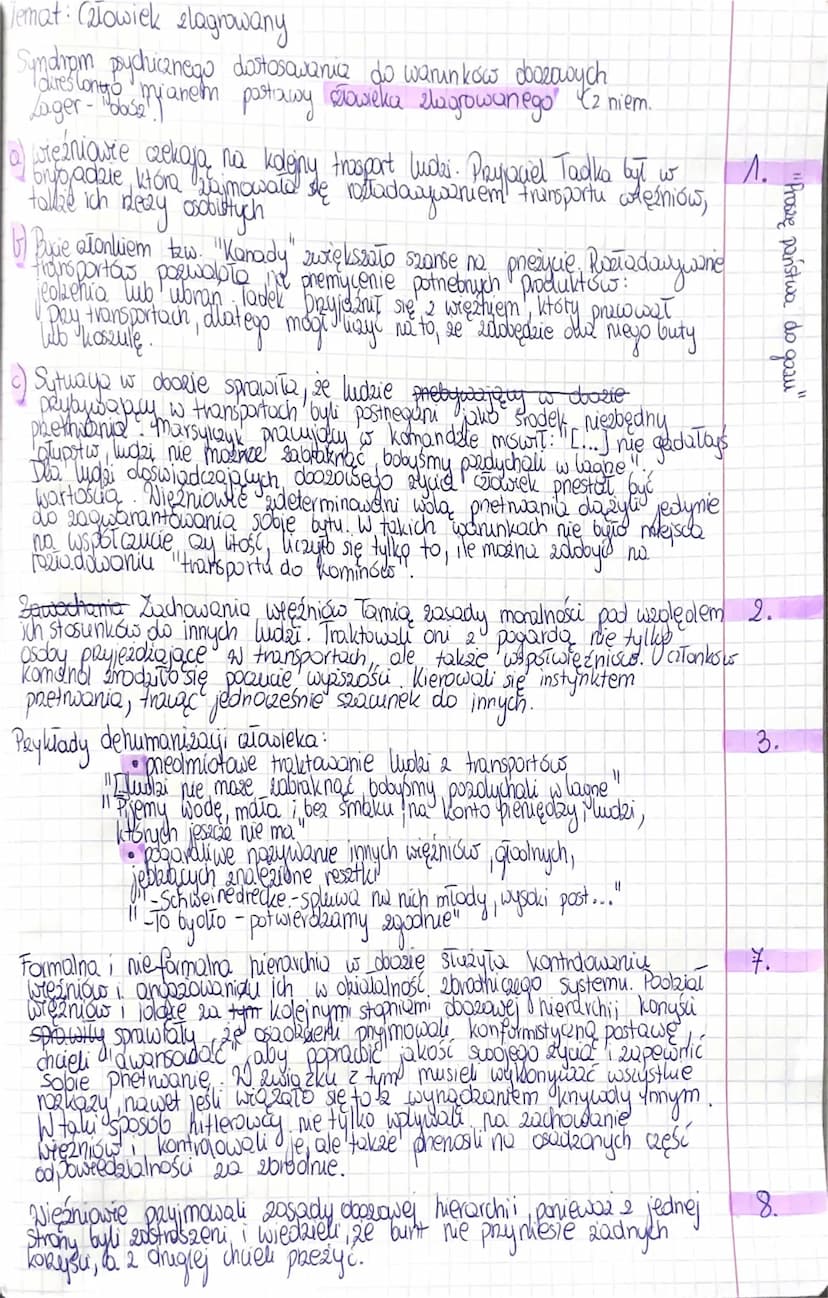 Temat: Człowiek zlagrowany
Syndrom psychicznego dostosowania do warunków obozowych
określonego mianem postawy człowieka zlagrowanego (z niem.
Lager - "obóz".)
1. "Proszę państwa do gazu"
a) więźniowie czekają na kolejny trasport ludzi. Przyjaciel Tadka był w
brygadzie która zajmowała się rozładowywaniem transportu więźniów,
także ich rzeczy osobistych
b) Bycie członkiem tzw. "Kanady" zwiększało szanse na przeżycie. Rozładowywanie
transportów pozwalało na przemycenie potrzebnych produktów:
jedzenia lub ubrań. Tadek przyjaźnił się z więźniem, który pracował
przy transportach, dlatego mógł liczyć na to, że zdobędzie dla niego buty
lub koszulę.
c) Sytuacja w obozie sprawiła, że ludzie przebywający w obozie
przybywający w transportach byli postrzegani jako środek niezbędny
przetrwania. Marsylczyk pracujący w komandzie mówił: "[...] nie gadałbyś
głupstw, ludzi nie możrze zabraknąć, bobyśmy pozdychali w lagrze".
Dla ludzi doświadczających obozowego życia człowiek przestał być
wartością. Więźniowie zdeterminowani wolą przetrwania dążyli jedynie
do zagwarantowania sobie bytu. W takich warunkach nie było miejsca
na współczucie czy litość, liczyło się tylko to, ile można zdobyć na
rozładowaniu "transportu do kominów".
2.
Zawochania Zachowania więźniów łamią zasady moralności pod względem
ich stosunków do innych ludzi. Traktowali oni z pogardą nie tylko
osoby przyjeżdżające w transportach, ale także współwięźniów. U członków
komand zrodziło się poczucie wyższości. Kierowali się instynktem
przetrwania, tracąc jednocześnie szacunek do innych.
3.
Przykłady dehumanizacji człowieka:
• przedmiotowe traktowanie ludzi z transportów
"[ludzi nie może zabraknąć bobyśmy pozdychali w lagrze"
"Pijemy wodę, mała i bez smaku, na konto pieniędzy i ludzi,
których jeszcze nie ma"
• pogardliwe nazywanie innych więźniów, głodnych,
jedzących znalezione resztki
"-Schweinedrecke - spluwa na nich młody, wysoki post..."
"-To bydło - potwierdzamy zgodnie"
7.
Formalna i nieformalna hierarchia w obozie służyła kontrolowaniu
więźniów i angażowaniu ich w działalność zbrodniczego systemu. Podział
więźniów i idące za tym kolejnymi stopniami obozowej hierarchii korzyści
sprawiły sprawiały, że osadzeni przyjmowali konformistyczną postawę,
chcieli "awansować", aby poprawić jakość swojego życia i zapewnić
sobie przetrwanie. W związku z tym musieli wykonywać wszystkie
rozkazy, nawet jeśli wiązało się to z wyrządzaniem krzywdy innym.
W taki sposób hitlerowcy nie tylko wpływali na zachowanie
więźniów i kontrolowali je, ale także przenosili na osadzonych część
odpowiedzialności za zbrodnie.
8.
Więźniowie przyjmowali zasady obozowej hierarchii, ponieważ z jednej
strony byli zastraszeni, i wiedzieli, że bunt nie przyniesie żadnych
korzyści, a z drugiej chcieli przeżyć.